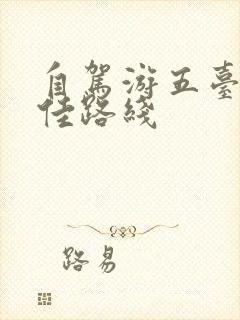 自驾游五臺
佳路綫
路易